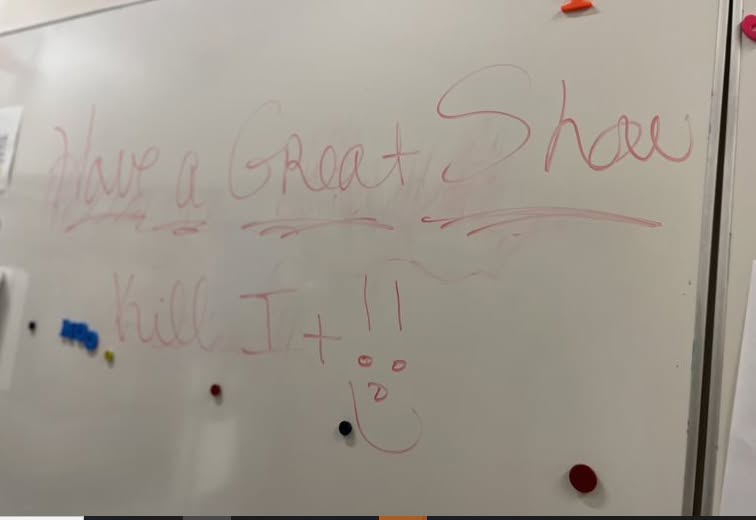 Have a Great Show
Kill It !!